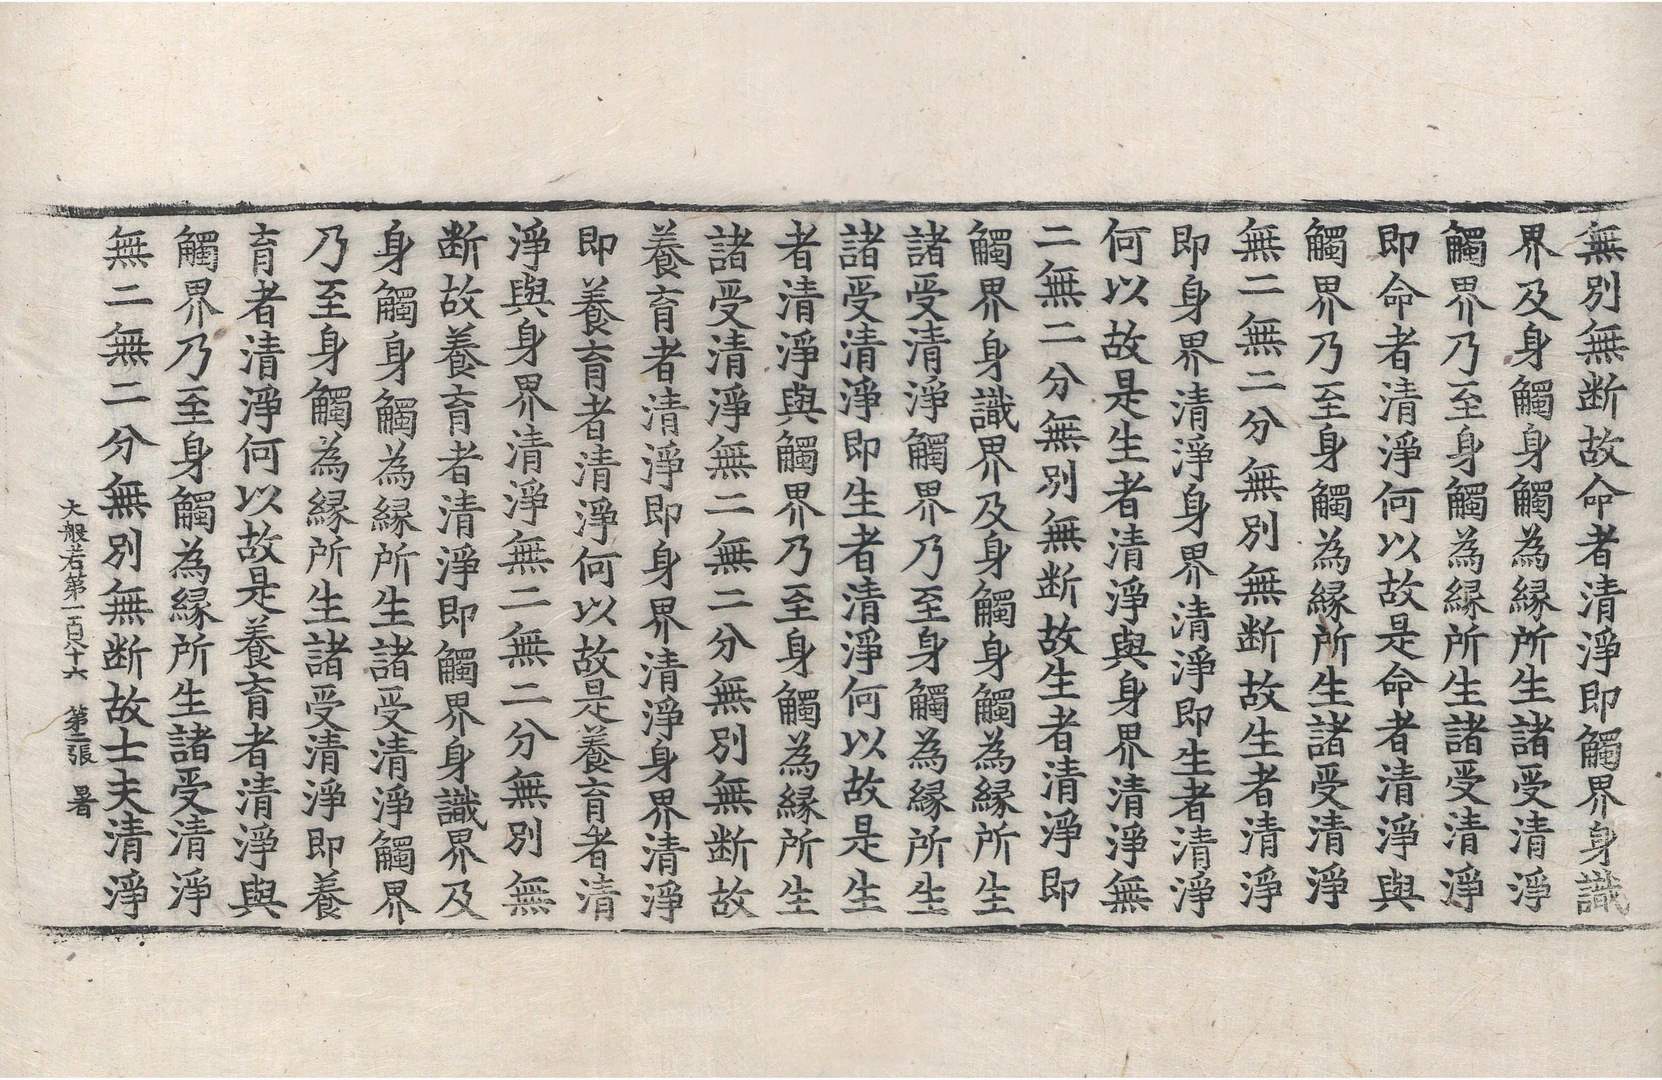 無別無断故命者清淨即觸界身識
界及身觸身觸為縁所生諸受清淨
觸界乃至身觸為縁所生諸受清淨
即命者清淨何以故是命者清淨與
觸界乃至身觸為縁所生諸受清淨
無二無二分無別無断故生者清淨
即身界清淨身界清淨即生者清淨
何以故是生者清淨與身界清淨無
二無二分無別無断故生者清淨即
觸界身識界及身觸身觸為縁所生
諸受清淨觸界乃至身觸為縁所生
諸受清淨即生者清淨何以故是生
者清淨與觸界乃至身觸為縁所生
諸受清淨無二無二分無別無断故
養育者清淨即身界清淨身界清淨
即養育者清淨何以故是養育者清
淨與身界清淨無二無二分無別無
断故養育者清淨即觸界身識界及
身觸身觸為縁所生諸受清淨觸界
乃至身觸為縁所生諸受清淨即養
育者清淨何以故是養育者清淨與
觸界乃至身觸為縁所生諸受清淨
無二無二分無別無断故士夫清淨
大般若第一百八十六 第二張 暑